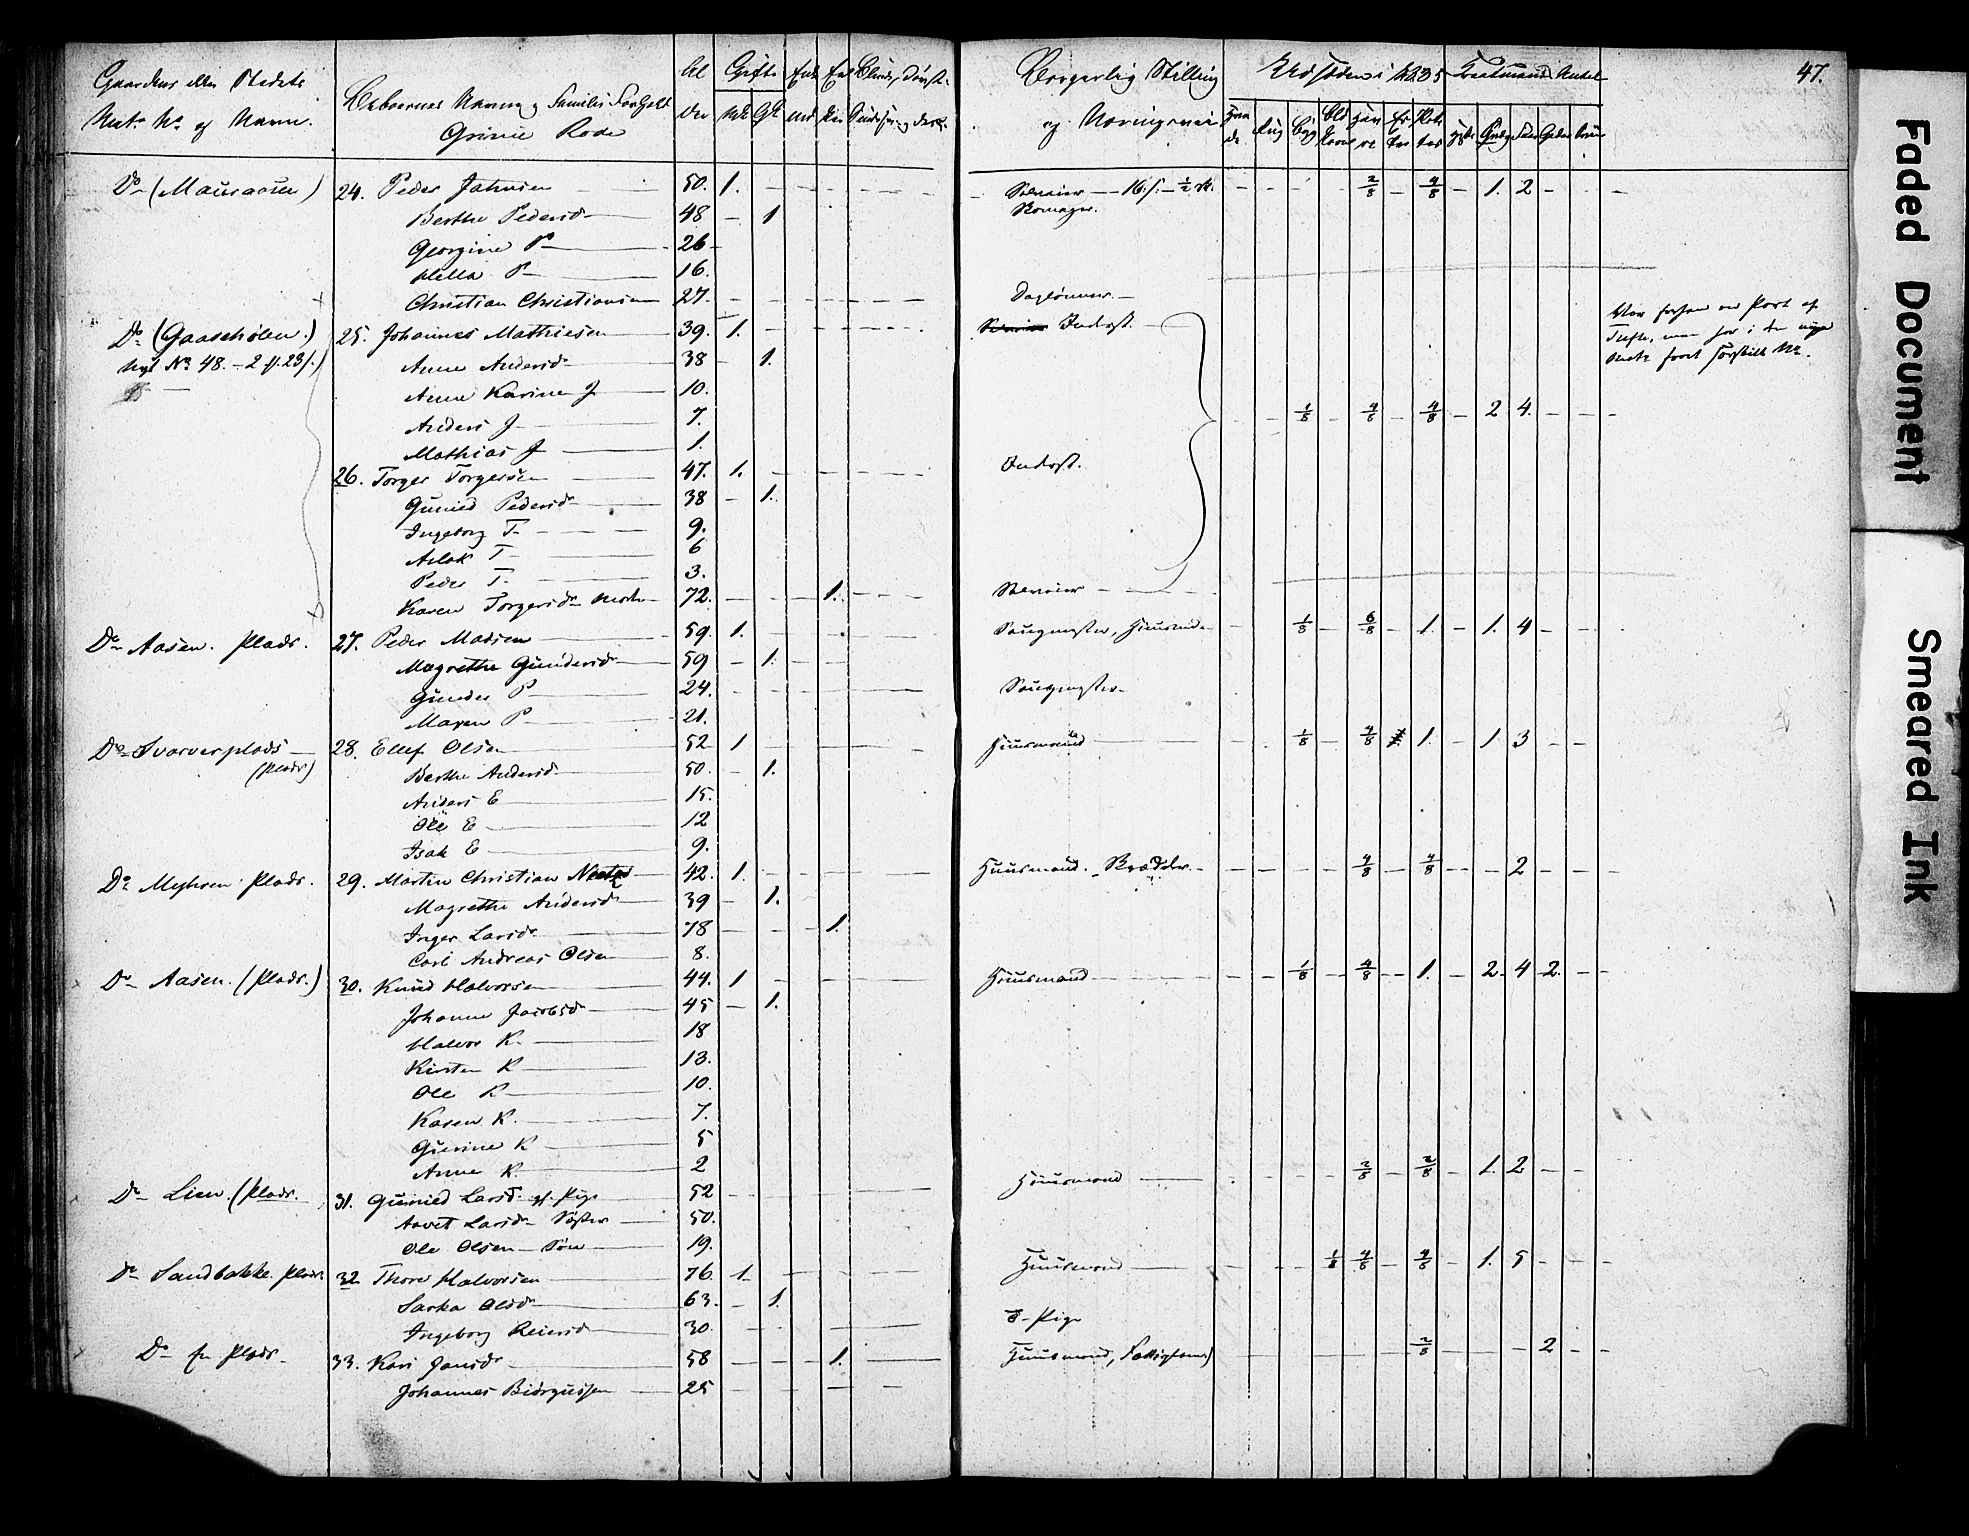 47.
Gaardens eller Stedets
Matr. No og Navn.
Beboernes Navne og Familie Forhold
Grinie Rode
Al
der
Gifte
Mk Qk
Borgerlig Stilling
og Næringsvei
Udsæden i 1835
Rug Byg
Kreaturernes Antal
Do (Mauraasen) 24. Peder Johnsen 50. 1. Selveier — 16 s. — 2/8 4/8 1. 2
Berthe Pedersd 48 1
Georgine P 26
Hella P 16.
Christian Christiansen 27. Daglønner.
Do (Gaasehølen.) 25. Johannes Mathiesen 39. 1. Inderst.
Nyt No 48. — 2 s. 23 s. Anne Andersd 38 1.
Anne Karine J 10.
Anders J 7. 1/8 4/8 4/8 2 4.
Mathias J 1.
26. Torger Torgersen 47. 1. Inderst.
Gunild Pedersd 38 1.
Ingeborg T. 9.
Aslak T 6
Peder T. 3.
Karen Torgersdr 72. 1. Selveier
Do Aasen. Plads. 27. Peder Madsen 59. 1. Saugmester, 1/8 6/8 1. 1. 4
Magrethe Gundersd 59 1.
Gunder P 24. Saugmester
Maren P 21.
Do Svarverplads 28. Ellef Olsen 52 1 Huusmand 1/8 4/8 1. 1 3
(Plads) Berthe Andersd 50. 1.
Anders E 15.
Ole E 12
Isak E 9.
Do Myhren Plads. 29. Martin Christian 42. 1. Huusmand. Skrædder. 4/8 4/8 2
Magrethe Andersd 39 1.
Inger Larsdr 78 1.
Carl Andreas Olsen 8.
Do Aasen. (Plads.) 30. Knud Halvorsen 44. 1 Huusmand 1/8 4/8 1. 2. 4 2.
Johanne Jacobsd 45 1.
Halvor K. 18
Kirsten K 13.
Ole K 10.
Karen K. 7.
Gurine K 5
Anne K. 2
Do Lien. (Plads. 31. Gunild Larsd. Pige 52 Huusmand 2/8 2/8 1. 2
Larsdr Søster 50.
Ole Olsen Søn 19.
Do Sandbakke. Plads 32 Thore Halvorsen 76. 1. Huusmand 1/8 4/8 4/8 1. 5
Olsdr 63. 1.
Ingeborg Reiersd 30. Pige
Do Plads 33. Kari Jansdr 58 1. Huusmand, 2/8 2
Johannes 25
Faded Document
Smeared Ink